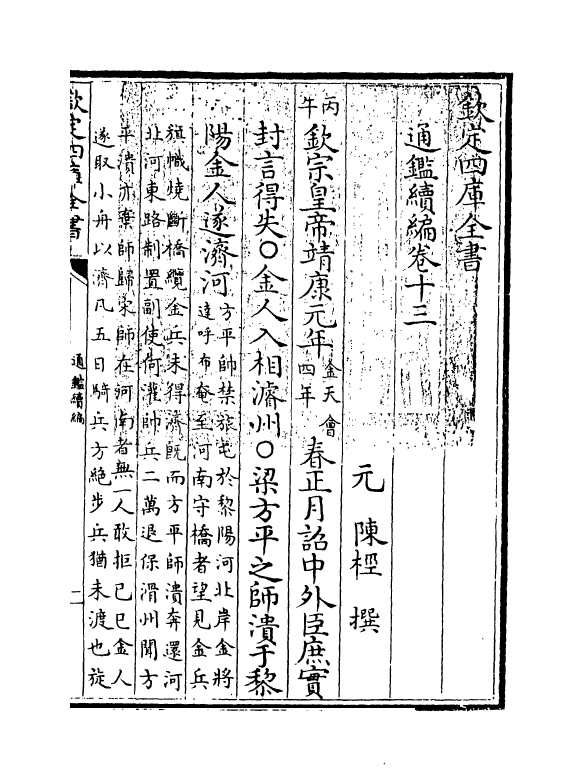 欽定四庫全書
通鑑續編卷十三
元 陳桱 撰
丙午
欽宗皇帝靖康元年
金天會四年
春正月詔中外臣庶實
封言得失○金人入相濬州○梁方平之師潰于黎
陽金人遂濟河
方平帥禁旅屯於黎陽河北岸金將
達呼布奄至河南守橋者望見金兵
旗幟燒斷橋纜金兵未得濟既而方平師潰奔還河
北河東路制置副使何灌帥兵二萬退保滑州聞方
平潰亦棄師歸宋師在河南者無一人敢拒己巳金人
遂取小舟以濟凡五日騎兵方絶步兵猶未渡也旋
欽定四庫全書
通鑑續編
二